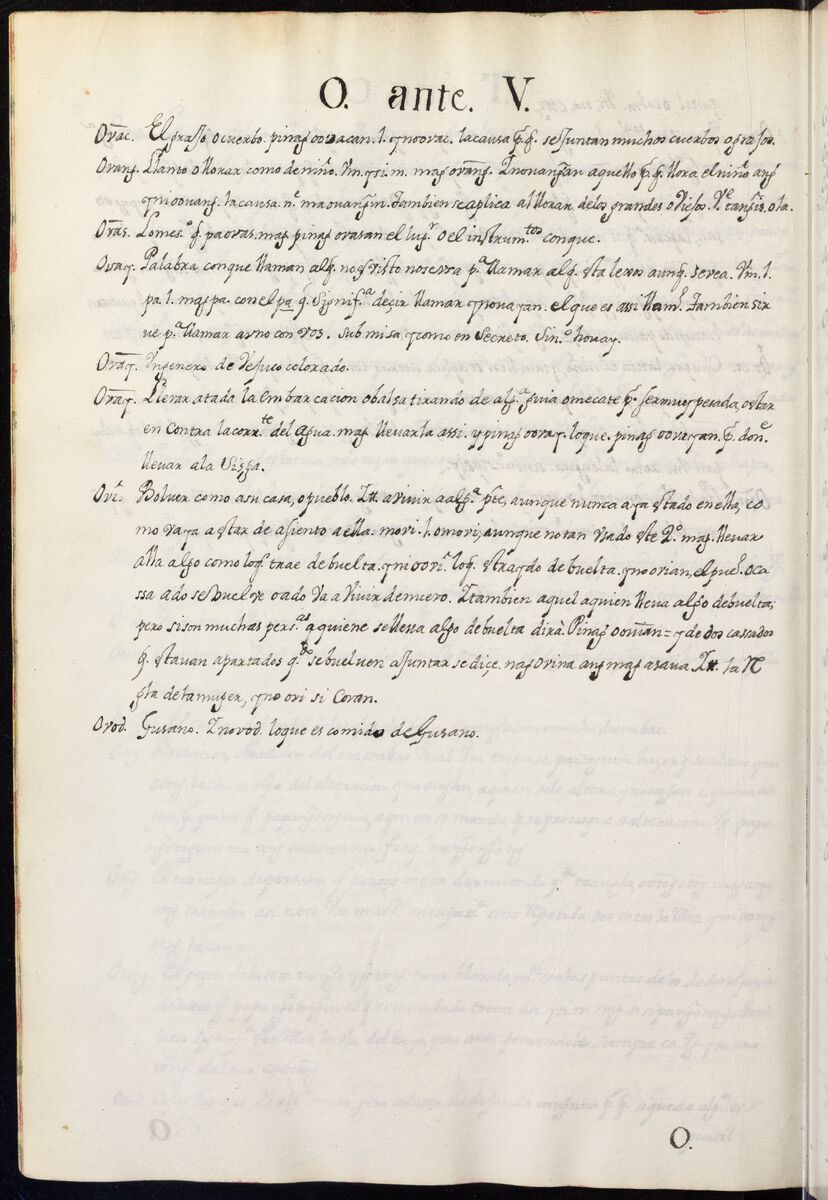 O. ante. V.
Ovac. El grajo o cuervo. pinag oovacan. l. ynoovac. la causa p.q. se juntan muchos cuervos o grajos.
Ovang. Llanto o llorar como de niño. Vm. yi. m. mag ovang. Ynovangan aquello p.q. llora el niño ang
yniovang. la causa. n.
Ovas. q. paovas. mag pinag ovasan el lug.r o el instrum.tos conque.
Ovay. Palabra con que llaman alg. no visto nosera p.a llamar alg. sta lexos aunq. se vea. Vm. l.
pa. l. magpa. con el pa q. signif.a deçir llamar ynovayan. el que es assi llam.o Tambien sir
ve p.a llamar a vno con vos. submisa, y como en secreto. Sin.o hovay.
Ovay. Vn genero de Vejuco colorado.
Ovay. Llevar atada la embarcacion o balsa tirando de alg.a guia o mecate p. ser muy pesada, o star
en contra la corr.te del agua. mag. llevarla assi. y pinag oovay. loque. pinag oovayan. p. don.e
llevar a la Sirga.
Ovi. Bolver como a su casa, o pueblo. Ytt. a vivir a alg.a pte, aunque nunca aya stado en ella, co
mo vaya a star de asiento a ella. movi. l. omovi, aunque no tan vsado ste 2.o mag. llevar
alla algo como loq. trae de buelta. yniovi. loq. straydo de buelta. ynovian, el pue.o o ca
ssa ado se buelve o ado va a vivir de nuevo. Ytambien aquel aquien lleva algo de buelta;
pero si son muchas pers.as a quiene se lleva algo de buelta dirà. Pinag oovian = y de dos casados
q. stavan apartados q.do se buelven a juntar se diçe. nag ovi na ang mag asava. Ytt. la Re
gla de la muger, yno ovi si Coran.
Ovod. Gusano. Ynovod. loque es comido de Gusano.
O.